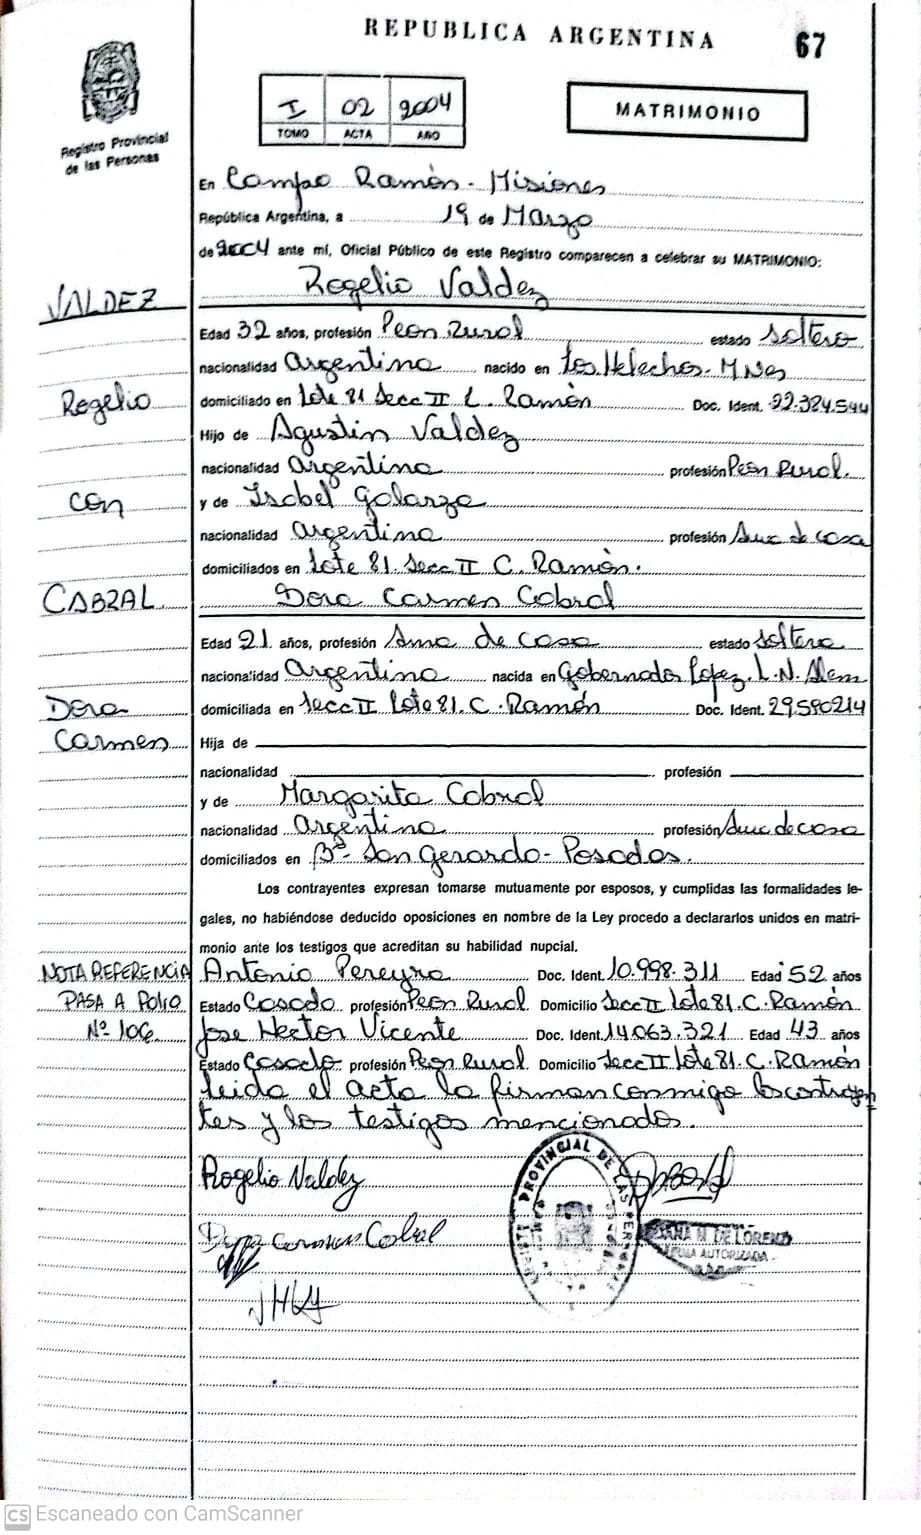 REPUBLICA ARGENTINA
67
Registro Provincial
de las Personas
I 02 2004
TOMO ACTA AÑO
MATRIMONIO
En Campo Ramón - Misiones
República Argentina, a 19 de Marzo
de 2004 ante mí, Oficial Público de este Registro comparecen a celebrar su MATRIMONIO:
VALDEZ
Rogelio
con
CABRAL
Dora
Carmen
Rogelio Valdez
Edad 32 años, profesión Peon Rural estado Soltero
nacionalidad Argentina nacido en Los Helechos - Mnes
domiciliado en Lote 81 Secc II C. Ramón Doc. Ident. 22.384.544
Hijo de Agustin Valdez
nacionalidad Argentina profesión Peón Rural.
y de Isabel Galarza
nacionalidad Argentina profesión Ama de casa
domiciliados en Lote 81. Secc II C. Ramón.
Dora Carmen Cabral
Edad 21 años, profesión Ama de casa estado Soltera
nacionalidad Argentina nacida en Gobernador Lopez. L.N. Alem
domiciliada en Secc II Lote 81. C. Ramón Doc. Ident. 29.590214
Hija de
nacionalidad profesión
y de Margarita Cabral
nacionalidad Argentina profesión Ama de casa
domiciliados en Bº - San Gerardo - Posadas.
Los contrayentes expresan tomarse mutuamente por esposos, y cumplidas las formalidades le-
gales, no habiéndose deducido oposiciones en nombre de la Ley procedo a declararlos unidos en matri-
monio ante los testigos que acreditan su habilidad nupcial.
NOTA REFERENCIA
PASA A FOLIO
Nº 106
Antonio Pereyra Doc. Ident. 10.998.311 Edad 52 años
Estado Casado profesión Peon Rural Domicilio Secc II Lote 81. C. Ramón
Jose Hector Vicente Doc. Ident. 14.063.321 Edad 43 años
Estado Casado profesión Peon Rural Domicilio Secc II Lote 81. C. Ramón
leida el acta la firman conmigo los contrayen
tes y los testigos mencionados.
Rogelio Valdez
Carmen Cabral
PROVINCIAL DE LAS PERSONAS
DE LORENZO
FIRMA AUTORIZADA
CS Escaneado con CamScanner